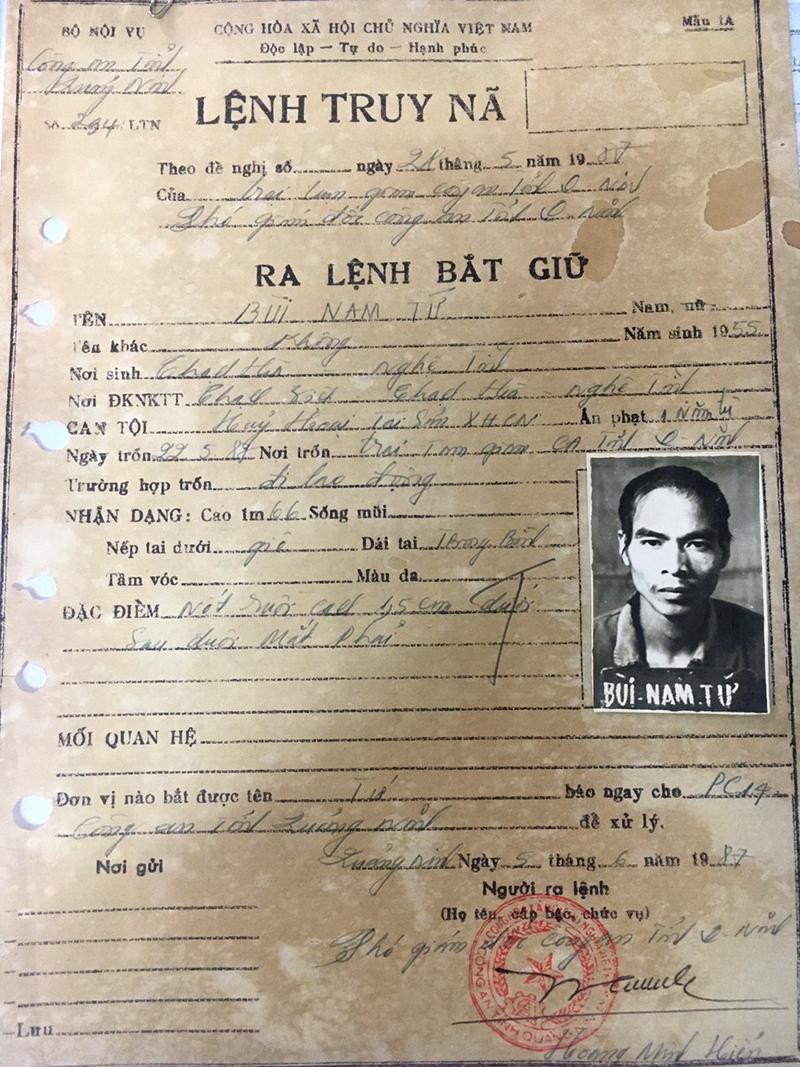 BỘ NỘI VỤ
CỘNG HÒA XÃ HỘI CHỦ NGHĨA VIỆT NAM
Mẫu 1A
Công an Tỉnh
Độc lập — Tự do — Hạnh phúc
Số 234/LTN
LỆNH TRUY NÃ
Theo đề nghị số ngày 28 tháng 5 năm 1987
Của trại tạm giam công an Tỉnh Q. Ninh
Phó giám đốc công an Tỉnh Q. Ninh
RA LỆNH BẮT GIỮ
TÊN BÙI NAM TỨ Nam, nữ
Tên khác Không Năm sinh 1955
Nơi sinh Nghệ Tĩnh
Nơi ĐKNKTT Nghệ Tĩnh
CAN TỘI Huỷ Hoại Tài Sản XHCN Án phạt 1 Năm tù
Ngày trốn 22 5 87 Nơi trốn trại Tạm giam CA Tỉnh Q. Ninh
Trường hợp trốn đi lao động
NHẬN DẠNG: Cao 1m 66 Sống mũi
Nếp tai dưới Dái tai Trung Bình
Tầm vóc Màu da
ĐẶC ĐIỂM Nốt Ruồi cách 4,5cm dưới
Sau đuôi Mắt Phải
BÙI-NAM.TỨ
MỐI QUAN HỆ
Đơn vị nào bắt được tên Tứ báo ngay cho PC14
Công an Tỉnh Quảng Ninh để xử lý.
Nơi gửi
Quảng Ninh Ngày 5 tháng 6 năm 1987
Người ra lệnh
(Họ tên, cấp bậc, chức vụ)
Phó giám đốc công an Tỉnh Q. Ninh
Lưu
Hoàng Minh Hiến